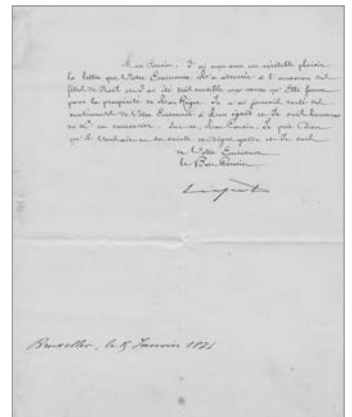 Mon Cousin, J'ai reçu avec un véritable plaisir
la lettre que Votre Eminence M'a adressée à l'occasion des
fêtes de Noël et J'ai été très sensible aux vœux qu'Elle forme
pour la prospérité de Mon Règne. Je n'ai jamais douté des
sentiments de Votre Eminence à Mon égard et Je suis heureux
de L'en remercier. Sur ce, Mon Cousin, Je prie Dieu
qu'il Vous ait en Sa sainte et digne garde et Je suis
de Votre Eminence
le Bon Cousin
Bruxelles, le Janvier